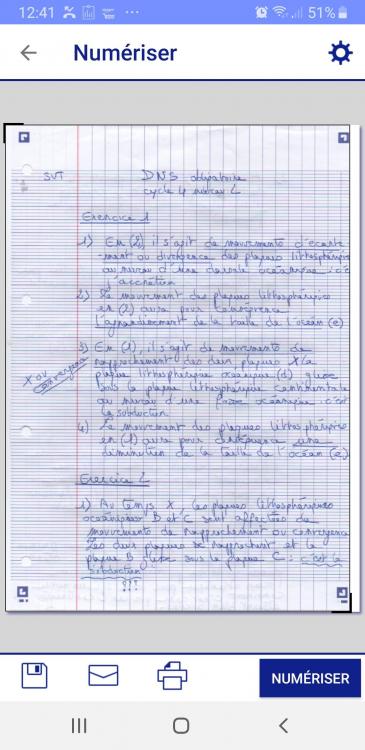 12:41
51%
Numériser
SVT
DNS obligatoire
cycle 4 niveau 2
Exercice 1
1) En (2) il s'agit de mouvements d'écarte
-ment ou divergence des plaques lithosphériques
au niveau d'une dorsale océanique : c'e
l'accrétion
2) Le mouvement des plaques lithosphériques
en (2) aura pour conséquence
l'agrandissement de la taille de l'océan (e)
3) En (1), il s'agit de mouvements de
rapprochement des deux plaques X la
X ou convergence
plaque lithosphérique océanique (d) glisse
sous la plaque lithosphérique continentale
au niveau d'une fosse océanique c'est
la subduction
4) Le mouvement des plaques lithosphériques
en (1) aura pour conséquence une
diminution de la taille de l'océan (e)
Exercice 2
1) Au temps X, les plaques lithosphériques
océaniques B et C sont affectées de
mouvements de rapprochement ou convergence
Les deux plaques se rapprochent et la
plaque B glisse sous la plaque C : c'est la
subduction
???
NUMÉRISER